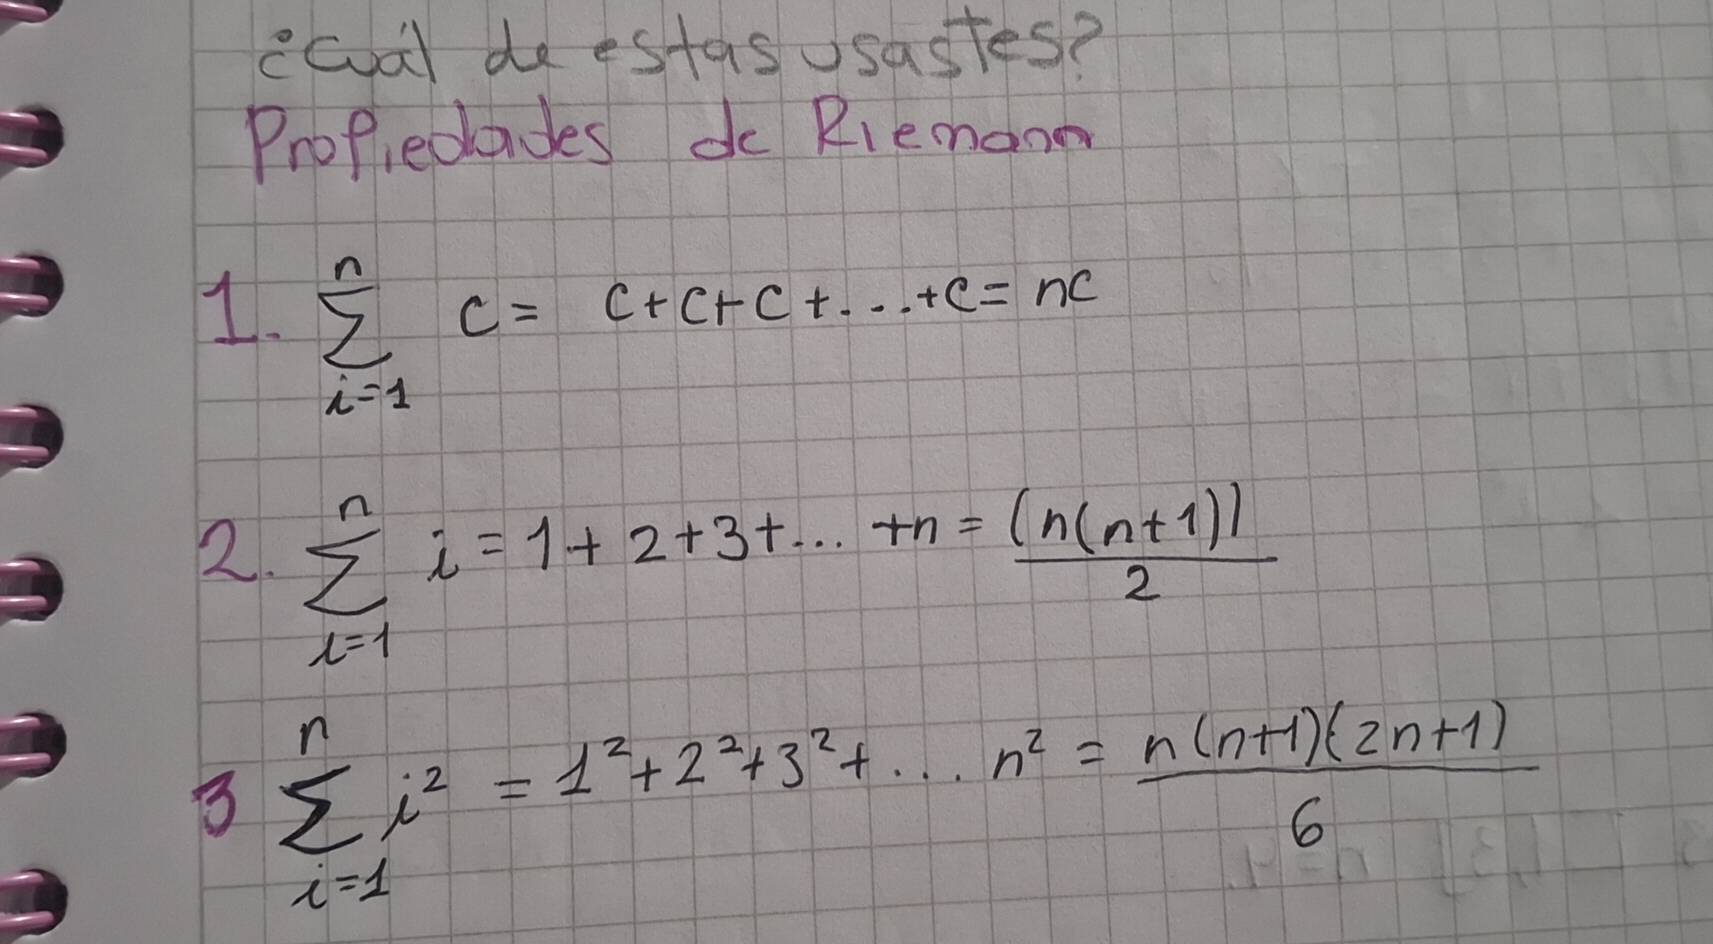 ¿Cuál de estas usastes?
Propiedades de Riemann
1. n ∑ i=1 c = c+c+c+...+c = nc
2. n ∑ i=1 i = 1+2+3+... +n = (n(n+1))/2
3 n ∑ i=1 i² = 1²+2²+3²+... n² = n(n+1)(2n+1)/6